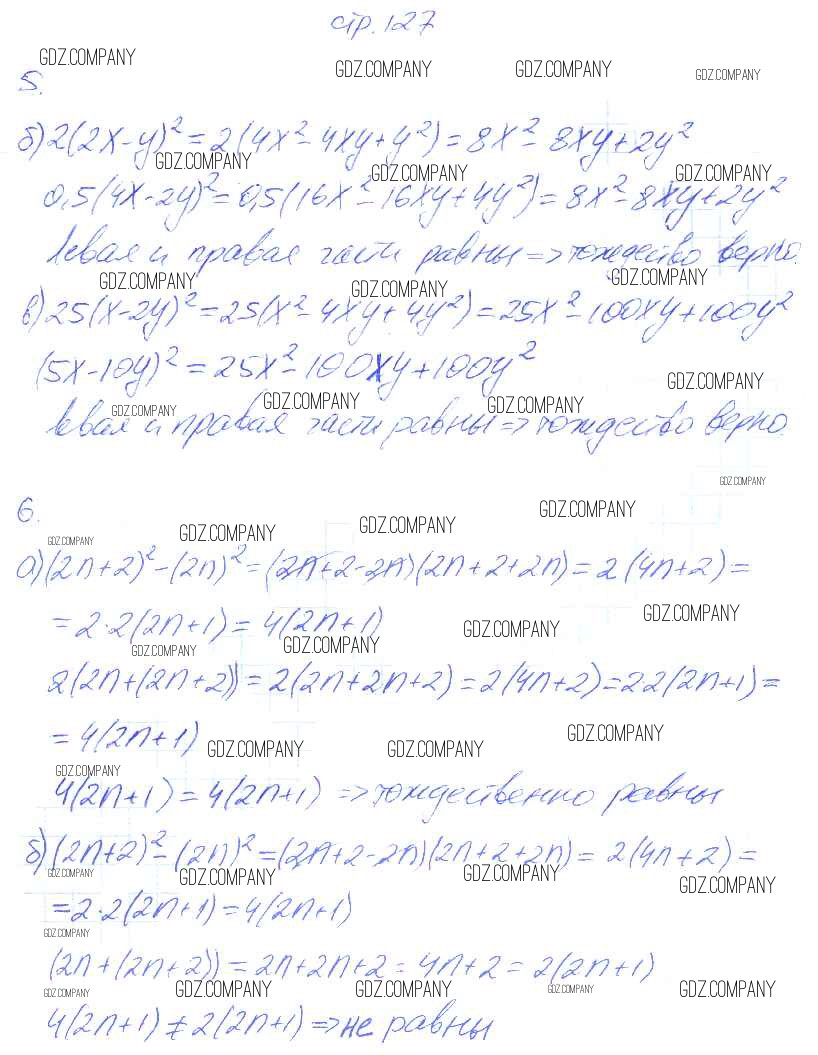 стр. 127
GDZ.COMPANY
GDZ.COMPANY GDZ.COMPANY GDZ.COMPANY
5.
б) 2(2x-y)² = 2(4x²-4xy+y²) = 8x²-8xy+2y²
GDZ.COMPANY GDZ.COMPANY GDZ.COMPANY
0,5(4x-2y)² = 0,5(16x²-16xy+4y²) = 8x²-8xy+2y²
левая и правая части равны => тождество верно.
GDZ.COMPANY GDZ.COMPANY GDZ.COMPANY
в) 25(x-2y)² = 25(x²-4xy+4y²) = 25x²-100xy+100y²
(5x-10y)² = 25x²-100xy+100y²
GDZ.COMPANY GDZ.COMPANY GDZ.COMPANY GDZ.COMPANY
левая и правая части равны => тождество верно.
GDZ.COMPANY
6.
GDZ.COMPANY GDZ.COMPANY GDZ.COMPANY GDZ.COMPANY
а) (2n+2)²-(2n)² = (2n+2-2n)(2n+2+2n) = 2(4n+2) =
= 2·2(2n+1) = 4(2n+1)
GDZ.COMPANY GDZ.COMPANY GDZ.COMPANY GDZ.COMPANY
2(2n+(2n+2)) = 2(2n+2n+2) = 2(4n+2) = 2·2(2n+1) =
= 4(2n+1)
GDZ.COMPANY GDZ.COMPANY GDZ.COMPANY GDZ.COMPANY
4(2n+1) = 4(2n+1) => тождественно равны
б) (2n+2)²-(2n)² = (2n+2-2n)(2n+2+2n) = 2(4n+2) =
GDZ.COMPANY GDZ.COMPANY GDZ.COMPANY GDZ.COMPANY
= 2·2(2n+1) = 4(2n+1)
GDZ.COMPANY
(2n+(2n+2)) = 2n+2n+2 = 4n+2 = 2(2n+1)
GDZ.COMPANY GDZ.COMPANY GDZ.COMPANY GDZ.COMPANY GDZ.COMPANY
4(2n+1) ≠ 2(2n+1) => не равны